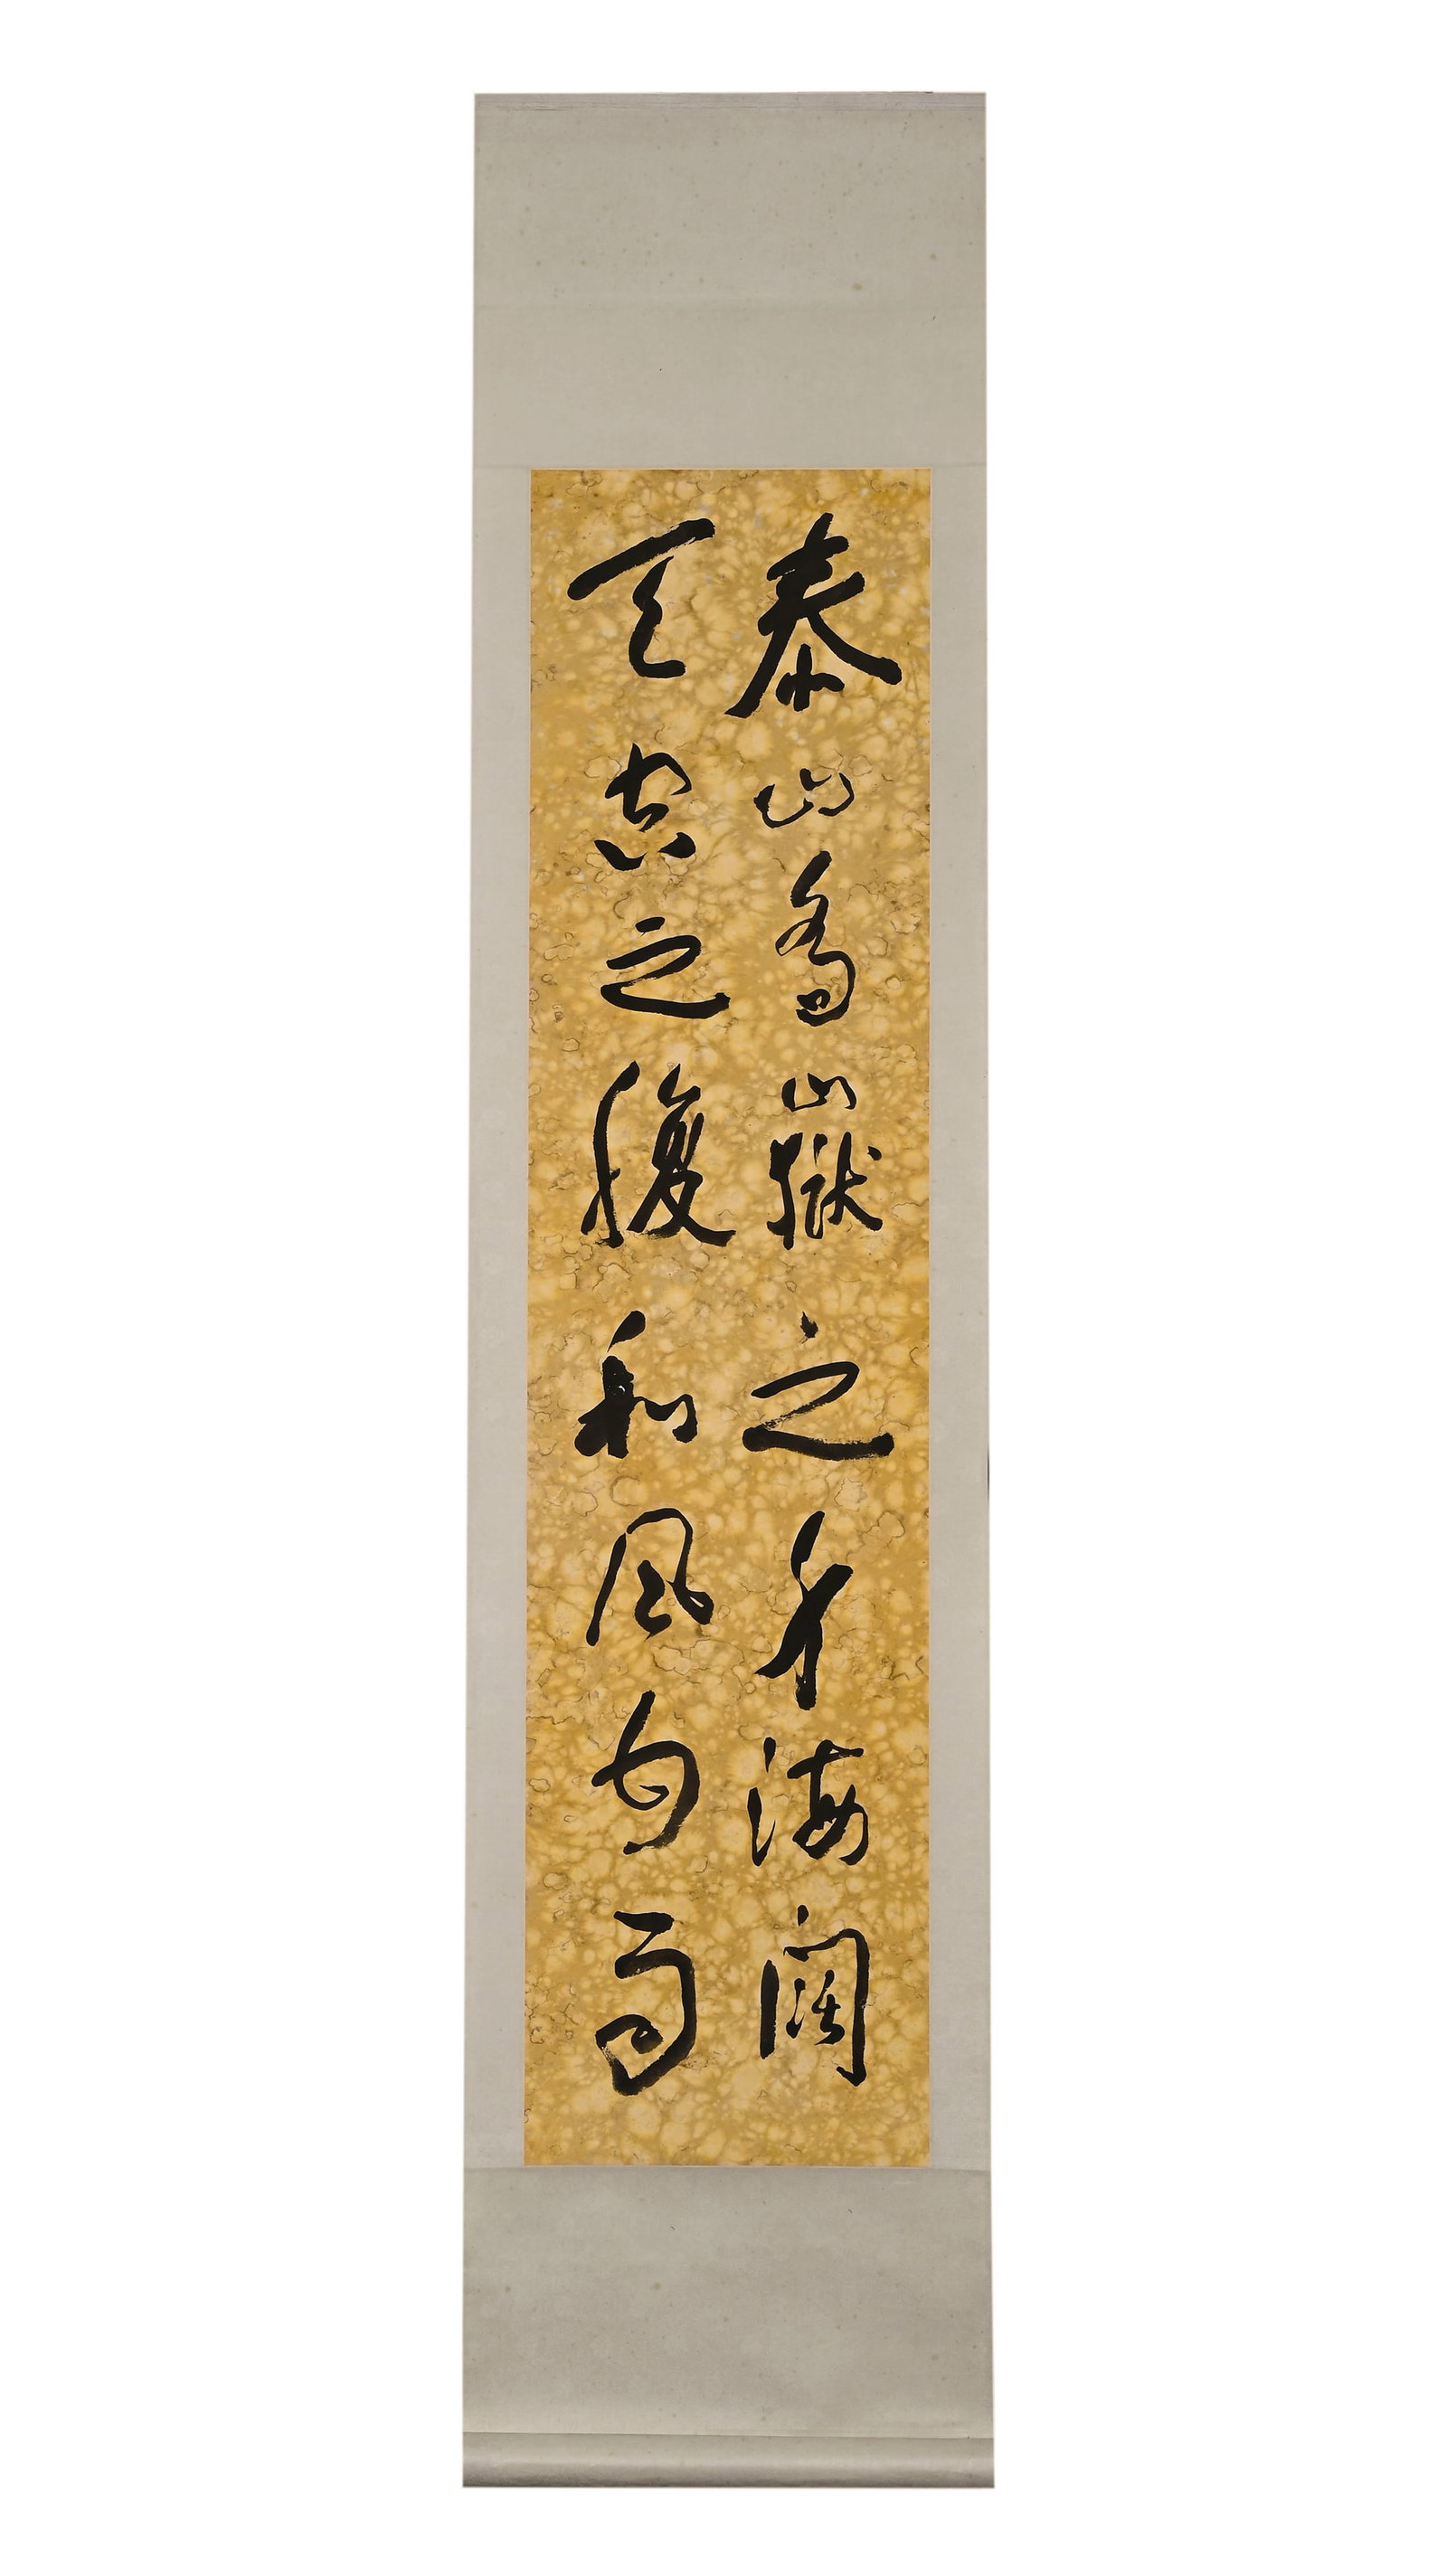 泰山喬嶽之身海闊
天空之腹和風甘雨